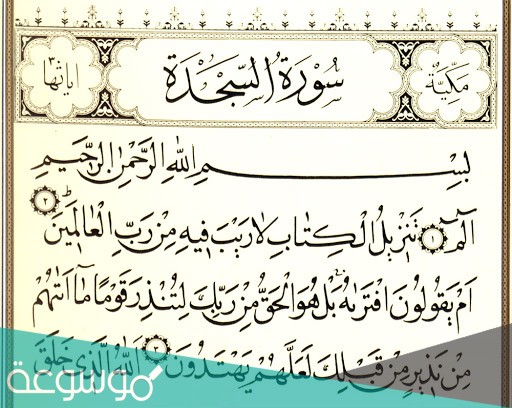 مكيّة سُورَةُ السَّجْدَةِ اياتها ٣٠
بِسْمِ اللّٰهِ الرَّحْمٰنِ الرَّحِيمِ
الٓمٓ ١ تَنْزِيلُ الْكِتَابِ لَا رَيْبَ فِيهِ مِنْ رَبِّ الْعَالَمِينَ ٢
اَمْ يَقُولُونَ افْتَرٰيهُ بَلْ هُوَ الْحَقُّ مِنْ رَبِّكَ لِتُنْذِرَ قَوْمًا مَٓا اَتٰيهُمْ
مِنْ نَذِيرٍ مِنْ قَبْلِكَ لَعَلَّهُمْ يَهْتَدُونَ ٣ اَللّٰهُ الَّذِي خَلَقَ
موسوعة